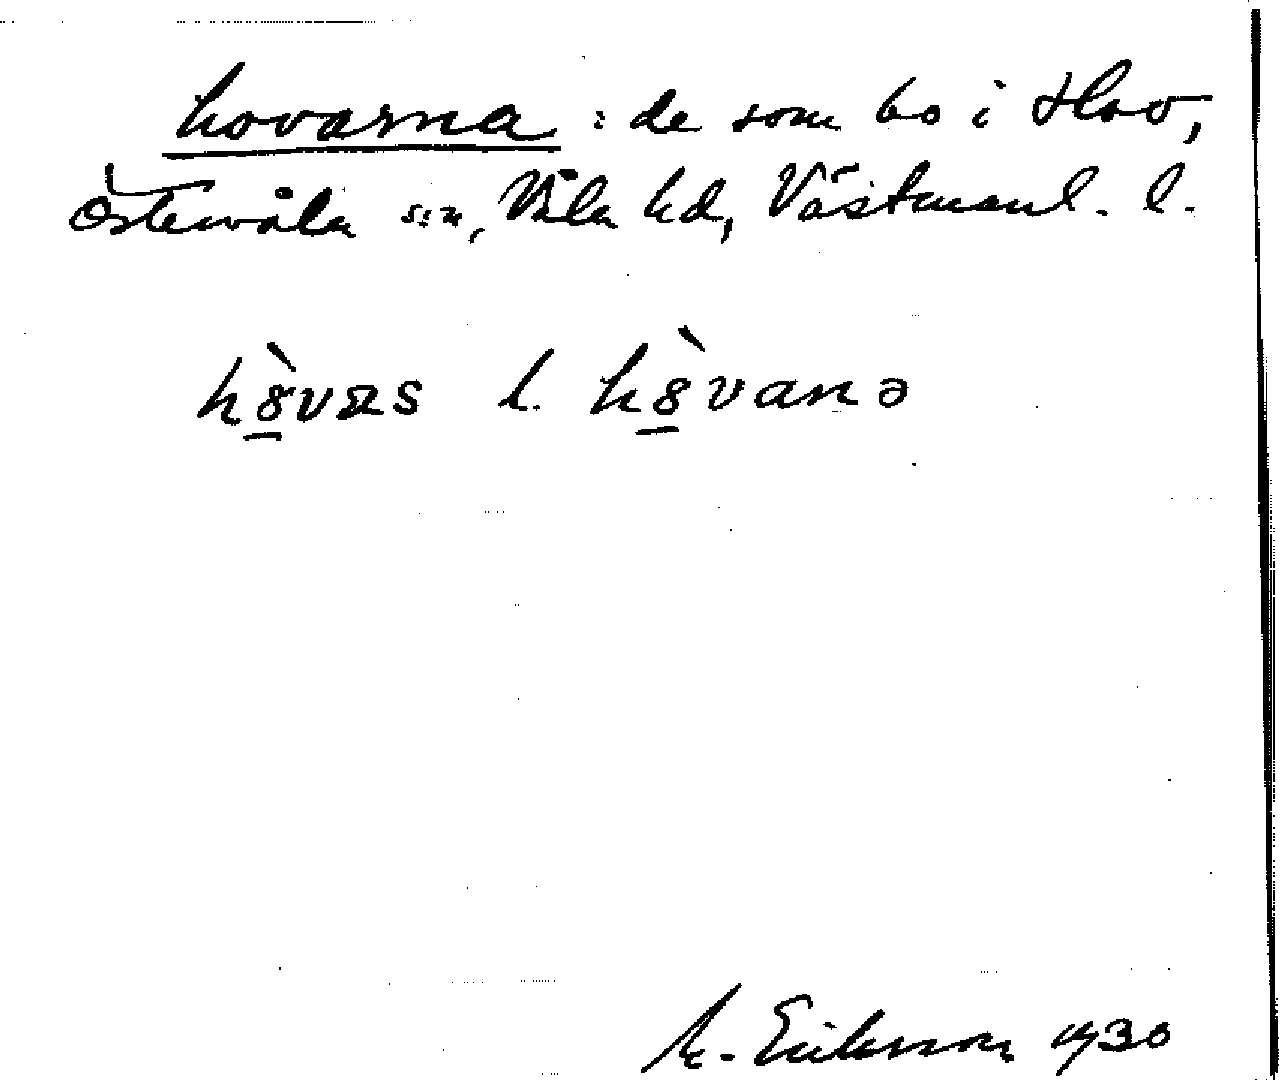 hovarna : de som bo i Hov,
Östervåla sn, Våla hd, Västmanl. l.
h8̱̀vaɴs l. h8̱̀vanə
M. Eriksson 1930